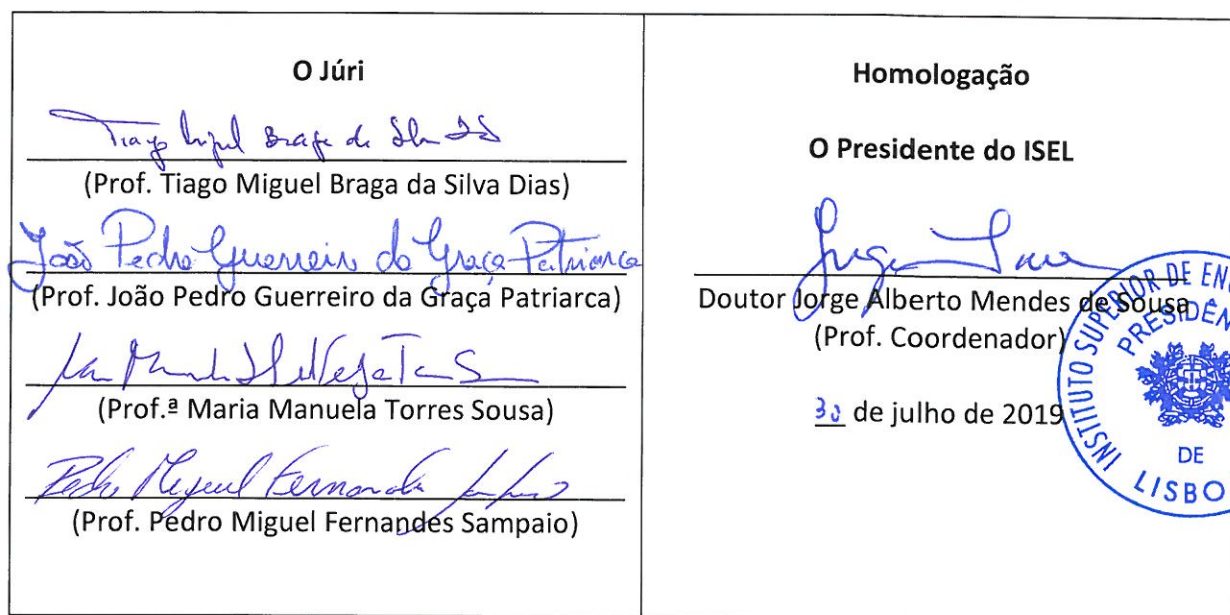 O Júri
Tiago Miguel Braga da Silva Dias
(Prof. Tiago Miguel Braga da Silva Dias)
João Pedro Guerreiro da Graça Patriarca
(Prof. João Pedro Guerreiro da Graça Patriarca)
(Prof.ª Maria Manuela Torres Sousa)
Pedro Miguel Fernandes
(Prof. Pedro Miguel Fernandes Sampaio)
Homologação
O Presidente do ISEL
Doutor Jorge Alberto Mendes de Sousa
(Prof. Coordenador)
30 de julho de 2019
INSTITUTO SUPERIOR DE ENG
PRESIDÊN
DE
LISBO